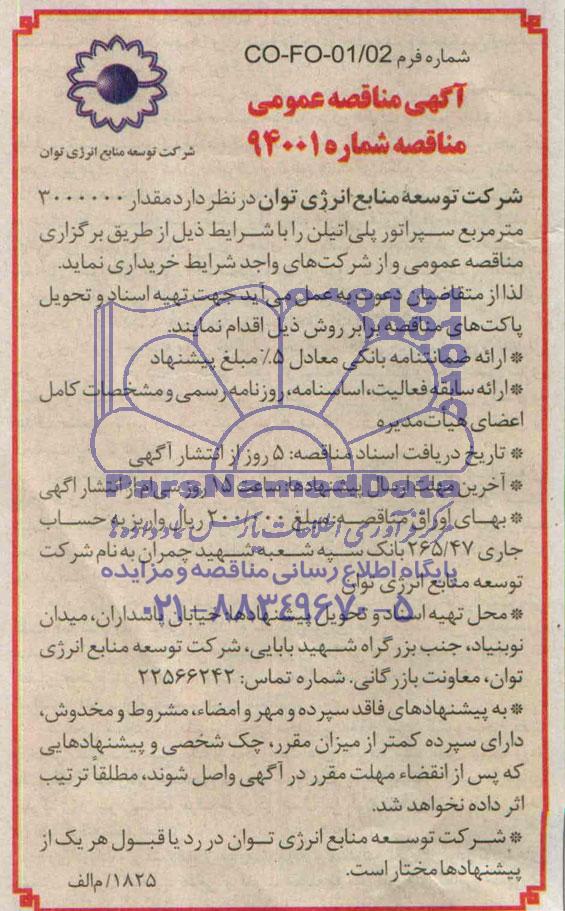 شماره فرم CO-FO-01/02
آگهی مناقصه عمومی
مناقصه شماره ۹۴۰۰۱
شرکت توسعه منابع انرژی توان
شرکت توسعه منابع انرژی توان در نظر دارد مقدار ۳۰۰۰۰۰۰
مترمربع سپراتور پلی‌اتیلن را با شرایط ذیل از طریق برگزاری
مناقصه عمومی و از شرکت‌های واجد شرایط خریداری نماید.
لذا از متقاضیان دعوت به عمل می‌آید جهت تهیه اسناد و تحویل
پاکت‌های مناقصه برابر روش ذیل اقدام نمایند.
* ارائه ضمانتنامه بانکی معادل ۵٪ مبلغ پیشنهاد
* ارائه سابقه فعالیت، اساسنامه، روزنامه رسمی و مشخصات کامل
اعضای هیأت‌مدیره
* تاریخ دریافت اسناد مناقصه: ۵ روز از انتشار آگهی
* آخرین مهلت ارسال پیشنهادها: ساعت ۱۵ روز سی‌ام از انتشار آگهی
* بهای اوراق مناقصه: مبلغ ۲۰۰/۰۰۰ ریال واریز به حساب
جاری ۲۶۵/۴۷ بانک سپه شعبه شهید چمران به نام شرکت
توسعه منابع انرژی توان
* محل تهیه اسناد و تحویل پیشنهادها: خیابان پاسداران، میدان
نوبنیاد، جنب بزرگراه شهید بابایی، شرکت توسعه منابع انرژی
توان، معاونت بازرگانی. شماره تماس: ۲۲۵۶۶۲۴۲
* به پیشنهادهای فاقد سپرده و مهر و امضاء، مشروط و مخدوش،
دارای سپرده کمتر از میزان مقرر، چک شخصی و پیشنهادهایی
که پس از انقضاء مهلت مقرر در آگهی واصل شوند، مطلقاً ترتیب
اثر داده نخواهد شد.
* شرکت توسعه منابع انرژی توان در رد یا قبول هر یک از
پیشنهادها مختار است.
۱۸۲۵/ م‌الف
ParsNamadData
پایگاه اطلاع رسانی مناقصه و مزایده
۰۲۱-۸۸۳۴۹۶۷۰-۵